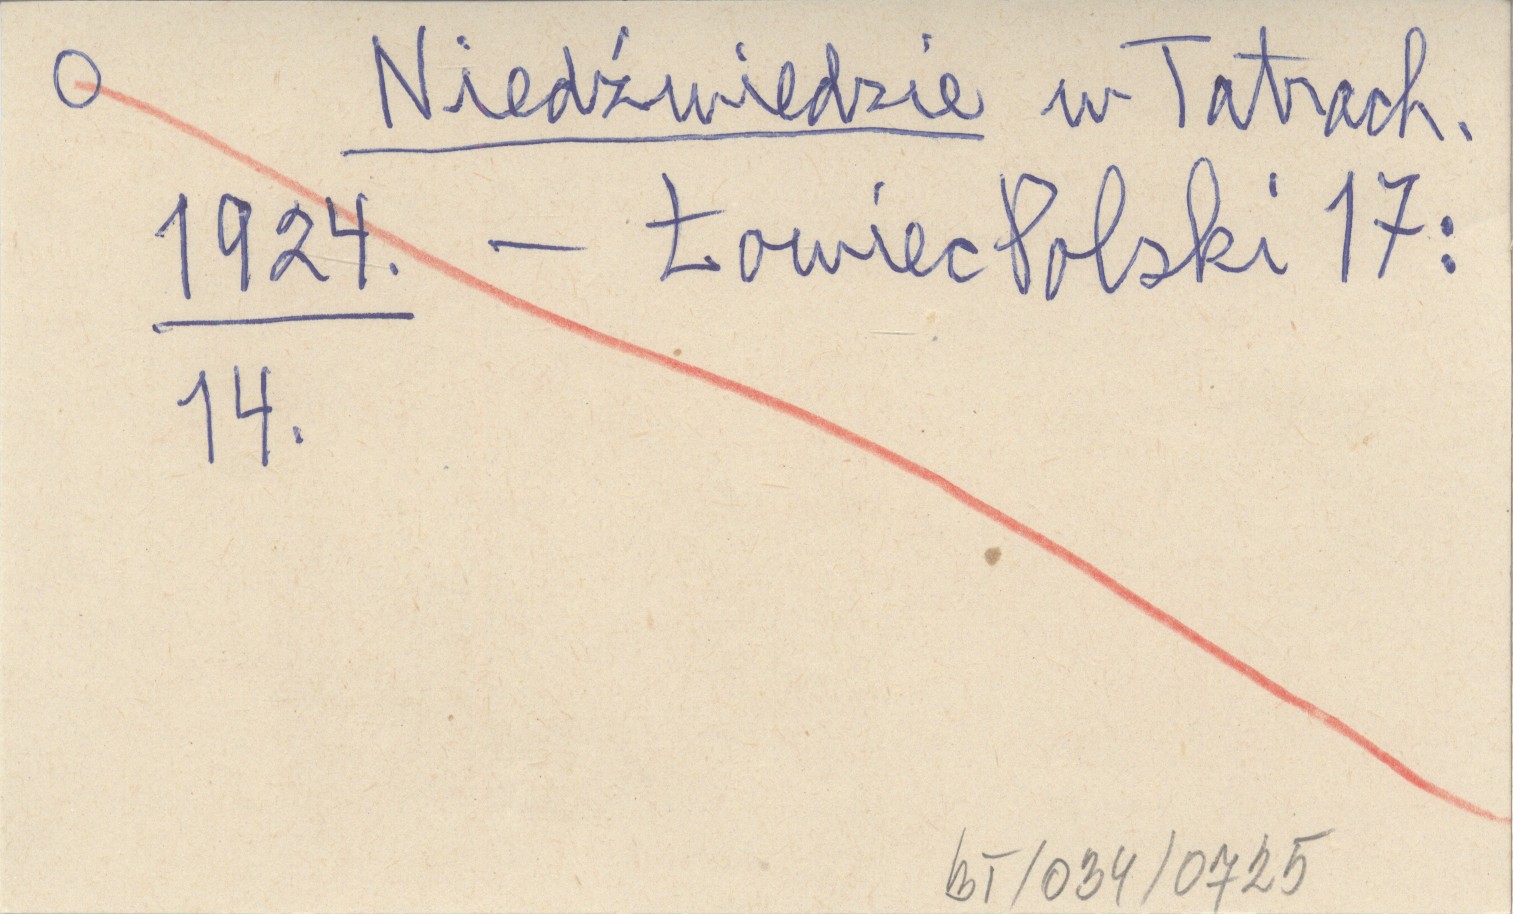 O Niedźwiedzie w Tatrach.
1924. — Łowiec Polski 17:
14.
BT/034/0725